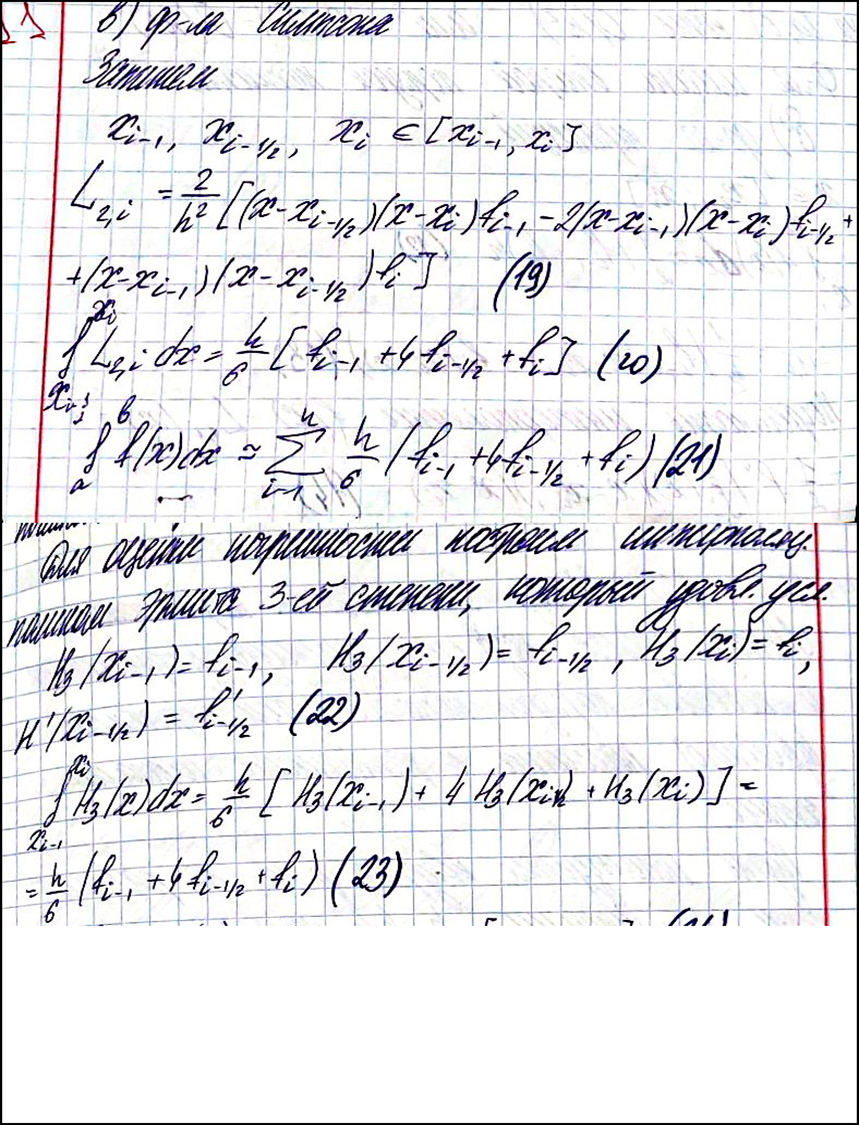 в) ф-ла Симпсона
Запишем
x_{i-1}, x_{i-1/2}, x_i ∈ [x_{i-1}, x_i]
L_{2,i} = 2/h² [(x-x_{i-1/2})(x-x_i)f_{i-1} - 2(x-x_{i-1})(x-x_i)f_{i-1/2} +
+(x-x_{i-1})(x-x_{i-1/2})f_i] (19)
∫_{x_{i-1}}^{x_i} L_{2,i} dx = h/6 [f_{i-1} + 4f_{i-1/2} + f_i] (20)
∫_a^b f(x)dx ≈ ∑_{i-1}^n h/6 (f_{i-1} + 4f_{i-1/2} + f_i) (21)
Для оценки погрешности построим интерполяц.
полином Эрмита 3-ей степени, который удовл. усл.
H₃(x_{i-1}) = f_{i-1}, H₃(x_{i-1/2}) = f_{i-1/2}, H₃(x_i) = f_i,
H'(x_{i-1/2}) = f'_{i-1/2} (22)
∫_{x_{i-1}}^{x_i} H₃(x)dx = h/6 [H₃(x_{i-1}) + 4 H₃(x_{i-1/2}) + H₃(x_i)] =
= h/6 (f_{i-1} + 4f_{i-1/2} + f_i) (23)